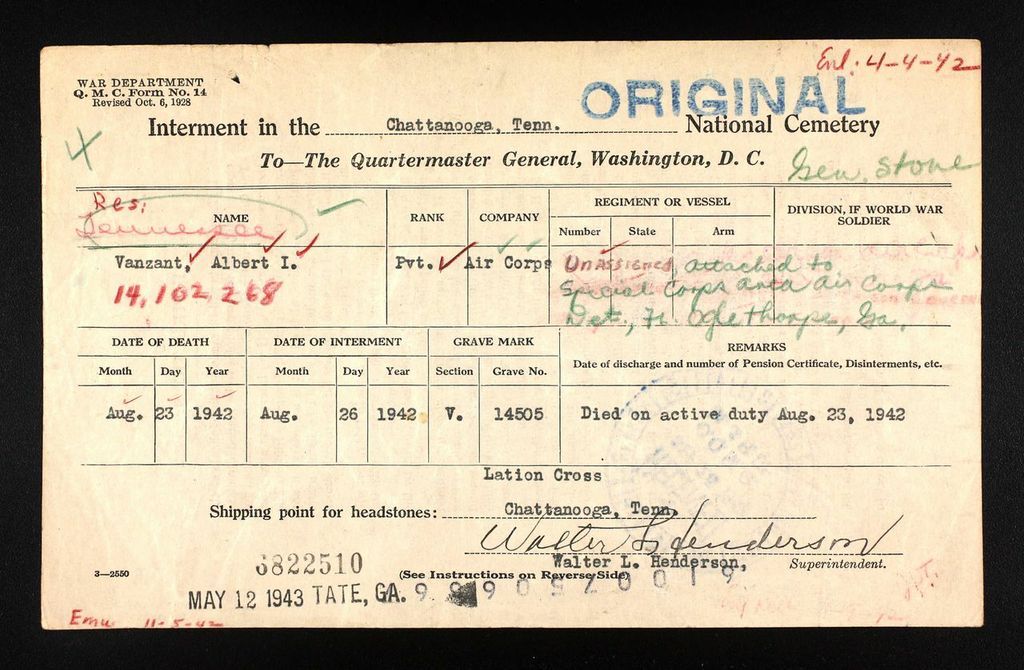 Enl. 4-4-42
WAR DEPARTMENT
Q. M. C. Form No. 14
Revised Oct. 6, 1928
ORIGINAL
Interment in the Chattanooga, Tenn. National Cemetery
To—The Quartermaster General, Washington, D. C.
Gen. Stone
Res:
Tennessee
NAME
RANK
COMPANY
REGIMENT OR VESSEL
Number
State
Arm
DIVISION, IF WORLD WAR SOLDIER
Vanzant, Albert I.
Pvt.
Air Corps
Unassigned, attached to
14,102,268
Special Corps area air Corps
Det., Ft. Oglethorpe, Ga.
DATE OF DEATH
DATE OF INTERMENT
GRAVE MARK
REMARKS
Month
Day
Year
Month
Day
Year
Section
Grave No.
Date of discharge and number of Pension Certificate, Disinterments, etc.
Aug. 23 1942
Aug. 26 1942
V. 14505
Died on active duty Aug. 23, 1942
Lation Cross
Shipping point for headstones: Chattanooga, Tenn.
Walter L. Henderson
Walter L. Henderson,
Superintendent.
6822510
3—2550
(See Instructions on Reverse Side)
MAY 12 1943 TATE, GA.
11-5-42